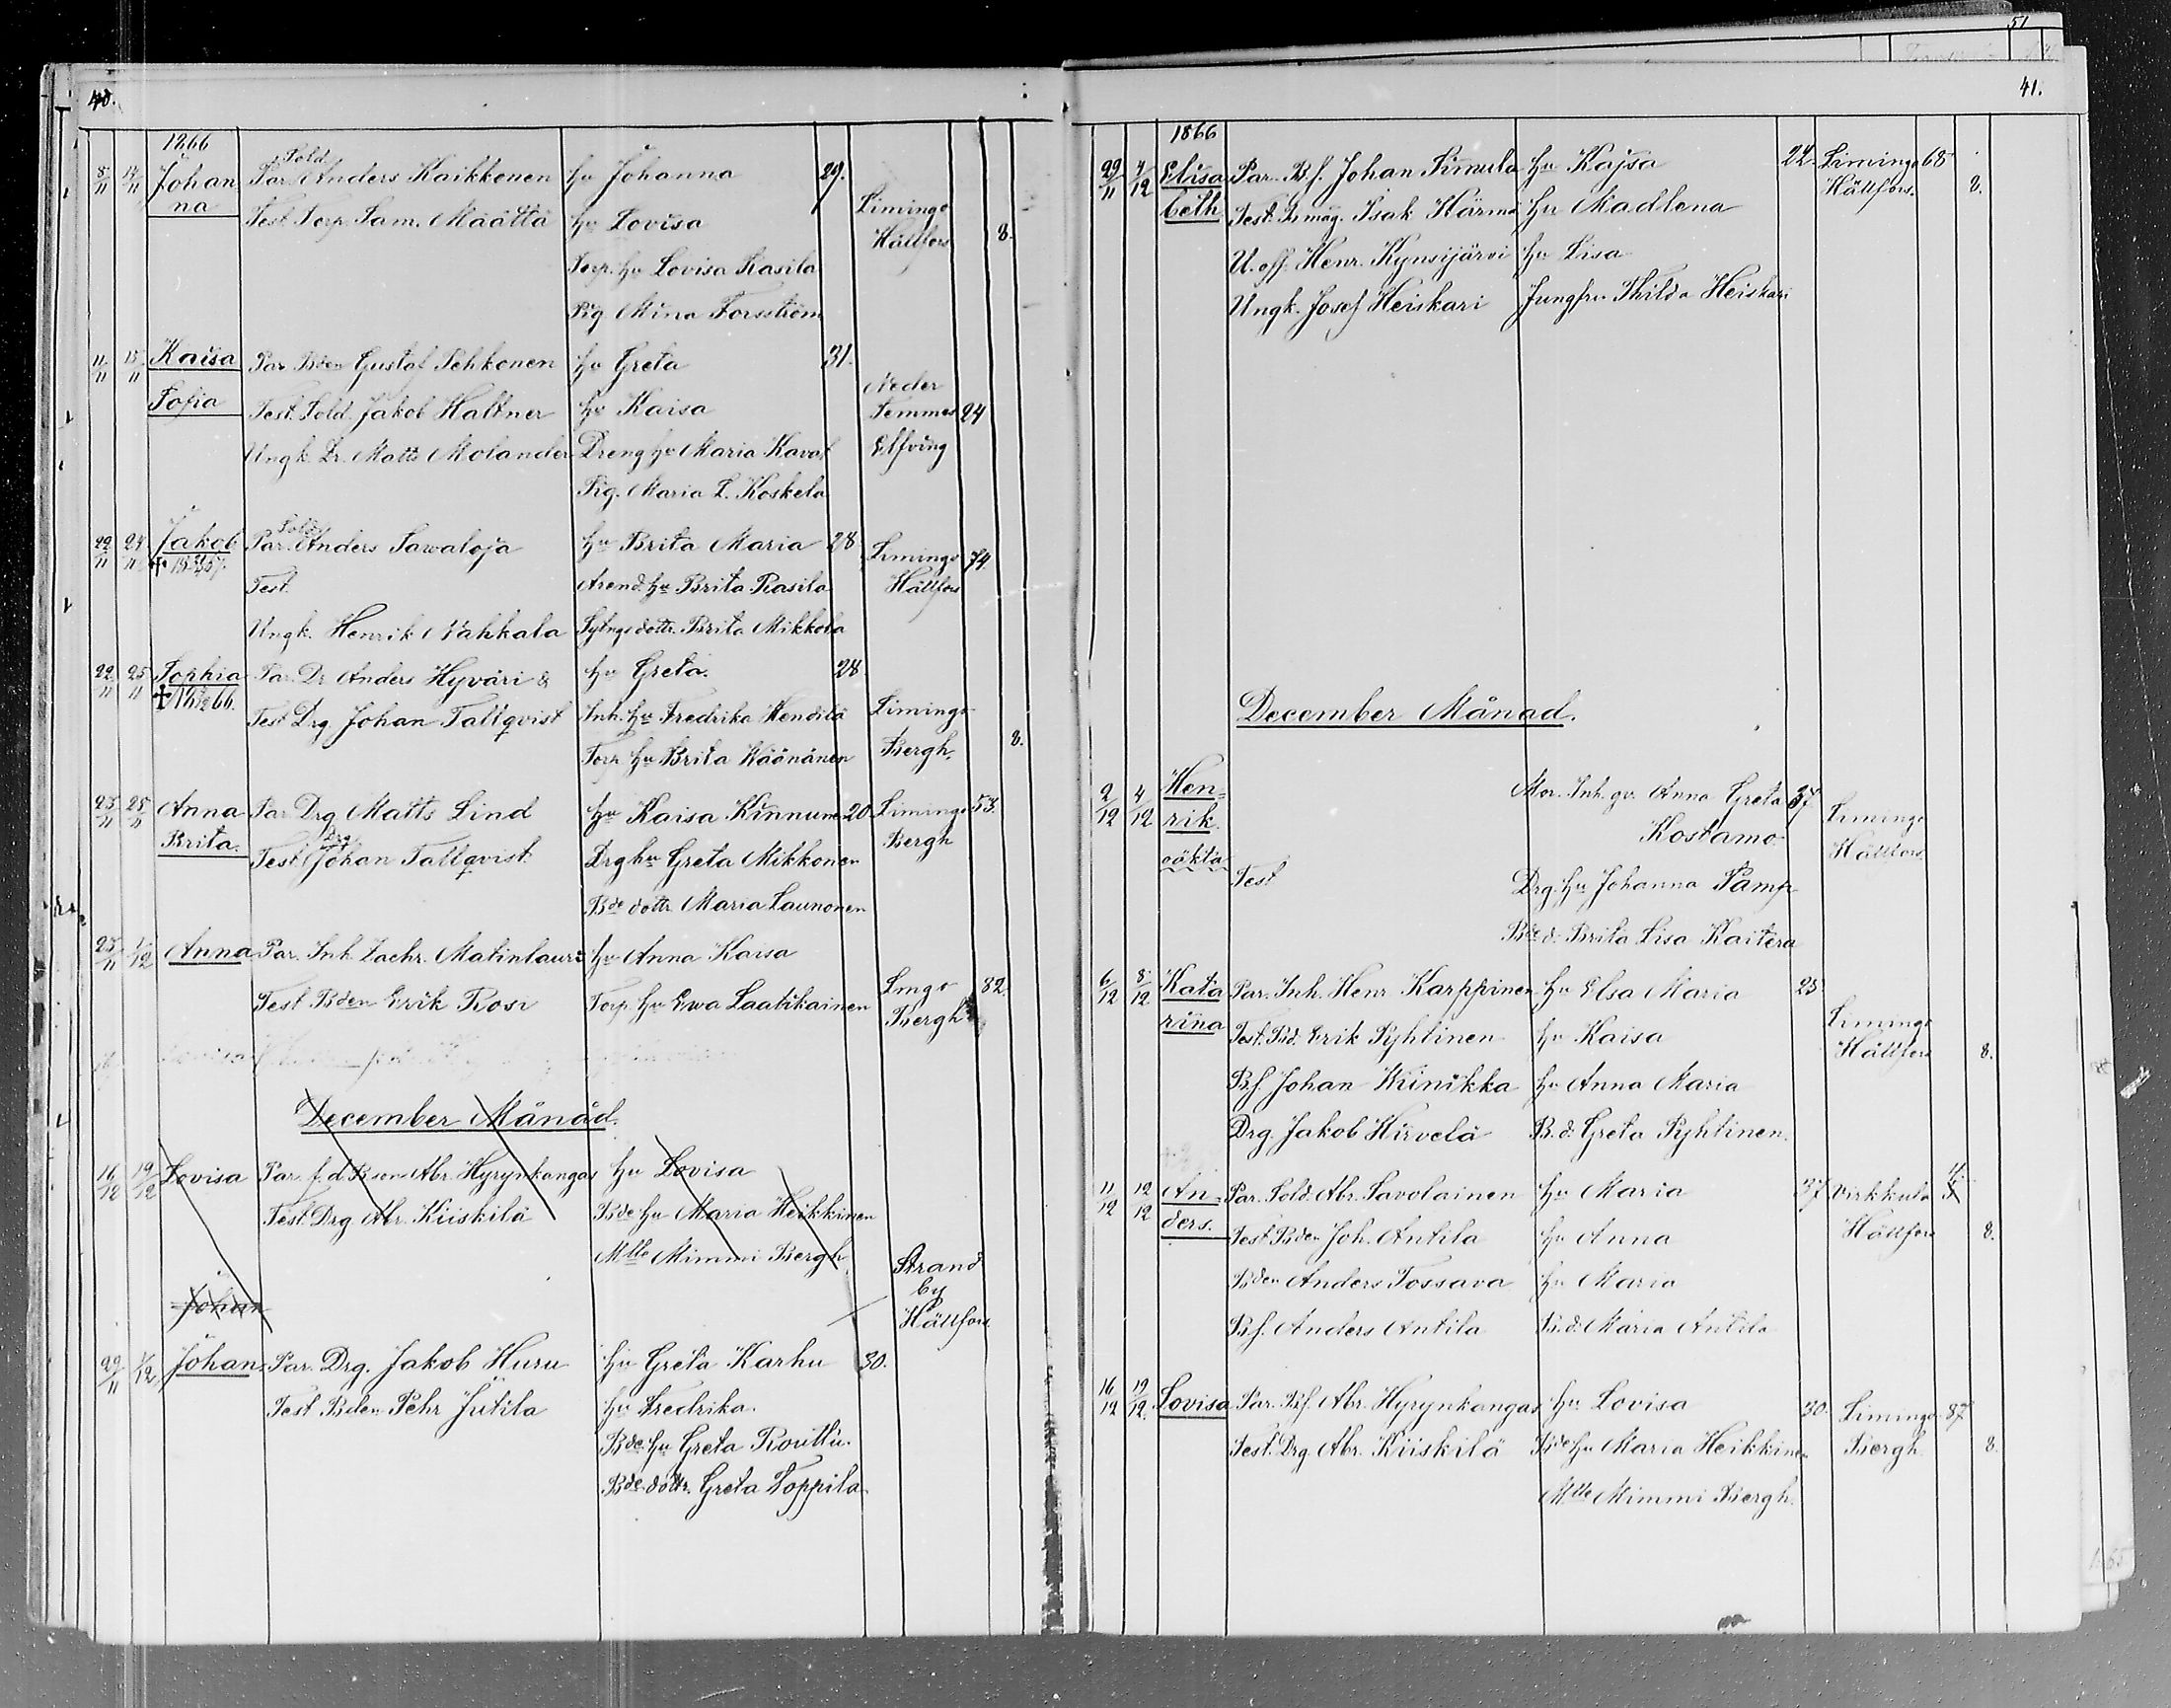 40.
1866
8/11 14/11 Johan Par. Sold. Anders Kaikkonen hu Johanna 29.
na Test. Torp. Sam. Määttä hu Lovisa Limingo
Hällfors 8.
Torp. hu Lovisa Rasila
Pig. Mina Forsström
11/11 15/11 Kaisa Par. Bden Gustaf Pehkonen hu Greta 31.
Sofia Test. Sold. Jakob Haltner hu Kaisa Neder Temmes 24
Ungk. Dr. Matts Molander Dreng hu Maria Elfving
Pig. Maria L. Koskela
22/11 24/11 Jakob Par. Sold. Anders Sawaloja hu Brita Maria 28 Limingo 74.
Test. Arend. hu Brita Rasila Hällfors
Ungk. Henrik Nahkala Sytngs dottr. Brita Mikkola
22/11 25/11 Sophia Par. Dr. Anders Hyväri & hu Greta. 28
Test Drg. Johan Tallqvist Inh. hu Fredrika Limingo
Torp. hu Brita Bergh. 8.
25/11 28/11 Anna Par. Drg. Matts Lind hu Kaisa Kinnunen 20. Limingo 53.
Brita. Test. Drg Johan Tallqvist Drg hu Greta Mikkonen Bergh
Bde dottr Maria Launonen
25/11 1/12 Anna Par. Inh. Zachr. Matinlauri hu Anna Kaisa
Test Bden Erik Rosi Torp. hu Ewa Laatikainen Lmgo 82.
Bergh
December Månad.
16/12 19/12 Lovisa Par. f.d. Bson Abr. Hyrynkangas hu Lovisa
Test. Drg Abr. Kiiskilä Bde hu Maria Heikkinen
Mlle Mimmi Bergh
Johan
Strand
by
Hällfors
29/11 1/12 Johan Par. Drg. Jakob Huru hu Greta Karhu 30.
Test Bden Pehr Jutila hu Fredrika.
Bde. hu Greta Routtu.
Bde dottr. Greta Toppila
41.
1866
29/11 4/12 Elisa Par. B.f. Johan Simula hu Kajsa 24. Limingo 68
beth Test. Bmåg. Isak Härmä hu Madlena Hällfors. 8.
U. off. Henr. Kynsijärvi hu Lisa
Ungk. Josef Heiskari Jungfru Thilda Heiskari
December Månad.
2/12 4/12 Hen= Mor. Inh. gu. Anna Greta 37.
rik Kostamo Limingo
oäkta Hällfors
Test Drg. hu Johanna Pamp
Bde d. Brita Lisa Kaitera
6/12 8/12 Kata Par. Inh. Henr. Karppinen hu Elsa Maria 25
rina Test. Bd. Erik Pyhtinen hu Kaisa Limingo
Hällfors 8.
B.f. Johan Kinikka hu Anna Maria
Drg. Jakob Hirvelä B. d. Greta Pyhtinen.
11/12 12/12 An= Par. Sold. Abr. Savolainen hu Maria 37 Virkkula
ders. Test Bden Joh. Antila hu Anna Hällfors 8.
Bden Anders Tossava hu Maria
B.f. Anders Antila B. d. Maria Antila
16/12 19/12 Lovisa Par. B.f. Abr. Hyrynkangas hu Lovisa 30. Limingo 87
Test. Drg Abr. Kiiskilä Bde hu Maria Heikkinen Bergh 8.
Mlle Mimmi Bergh.
51